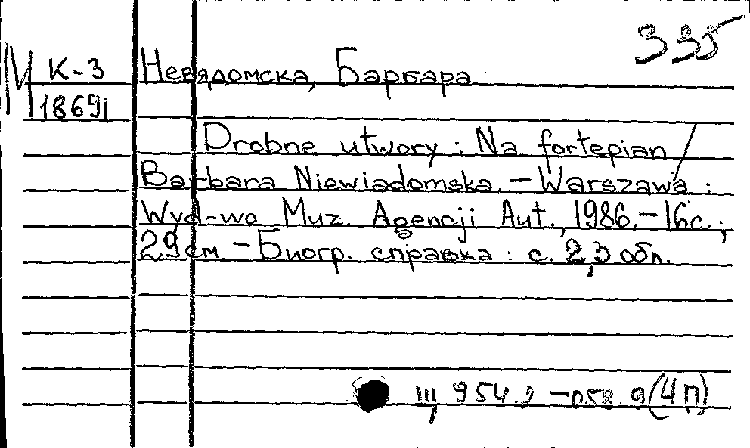 335
М К-3 Невядомска, Барбара
18691
Drobne utwory : Na fortepian /
Barbara Niewiadomska. - Warszawa :
Wyd-wo Muz. Agencji Aut., 1986. - 16с. ;
29см - Биогр. справка : с. 2, 3 обл.
Щ 954.9
(4П)